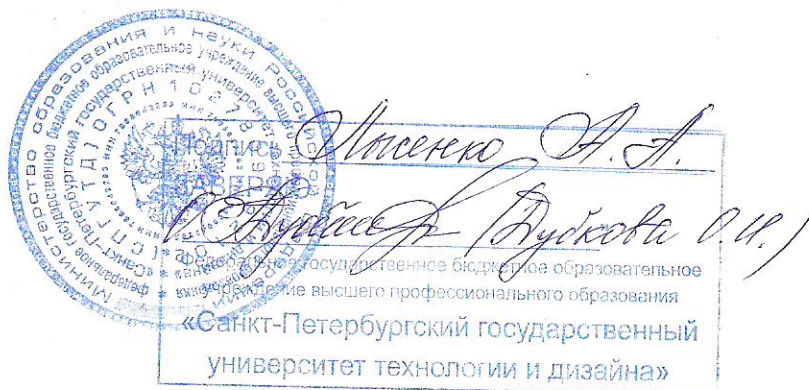 Министерство образования и науки Российской
федеральное государственное бюджетное образовательное учреждение высшего
«Санкт-Петербургский государственный университет
(СПГУТД) ОГРН 10278
Подпись Лысенко А. А.
ЗАВЕРЯЮ
(Дубкова О.И.)
Федеральное государственное бюджетное образовательное
учреждение высшего профессионального образования
«Санкт-Петербургский государственный
университет технологии и дизайна»